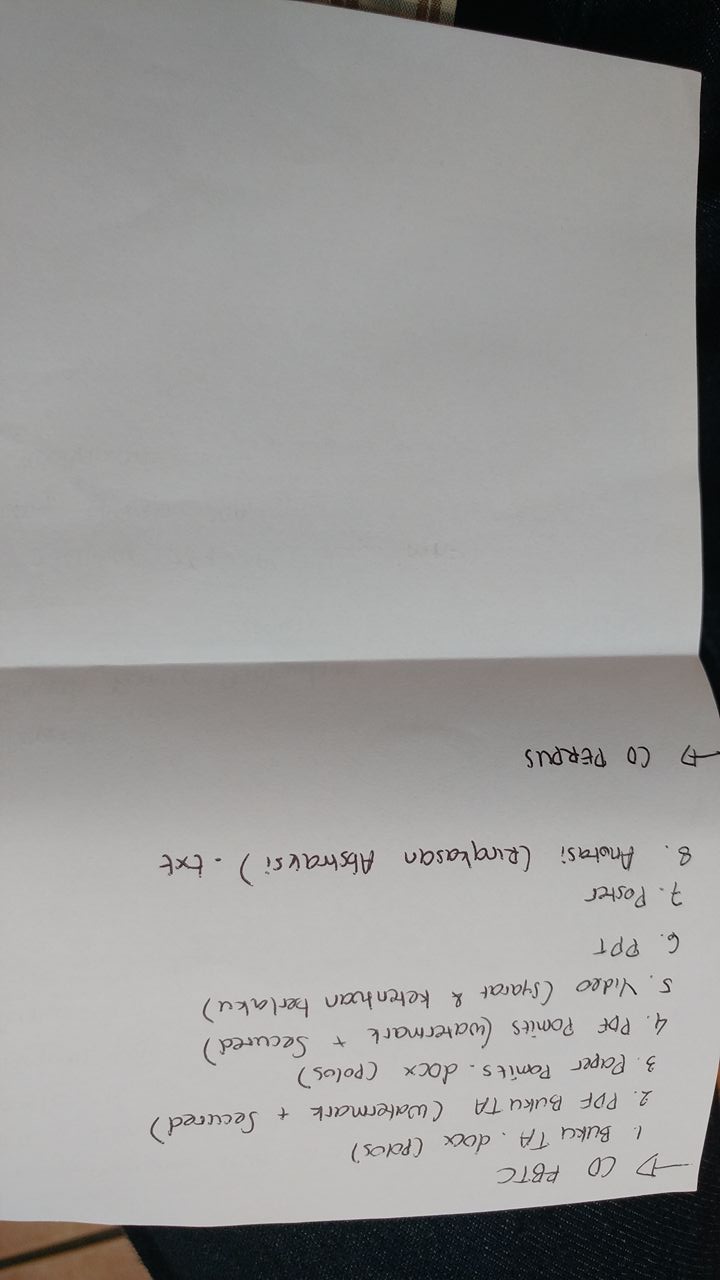 → CD RBTC
1. Buku TA .docx (polos)
2. PDF Buku TA (Watermark + Secured)
3. Paper Pomits .docx (polos)
4. PDF Pomits (watermark + Secured)
5. Video (syarat & ketentuan berlaku)
6. PPT
7. Poster
8. Anotasi (Ringkasan Abstraksi) .txt
→ CD PERPUS